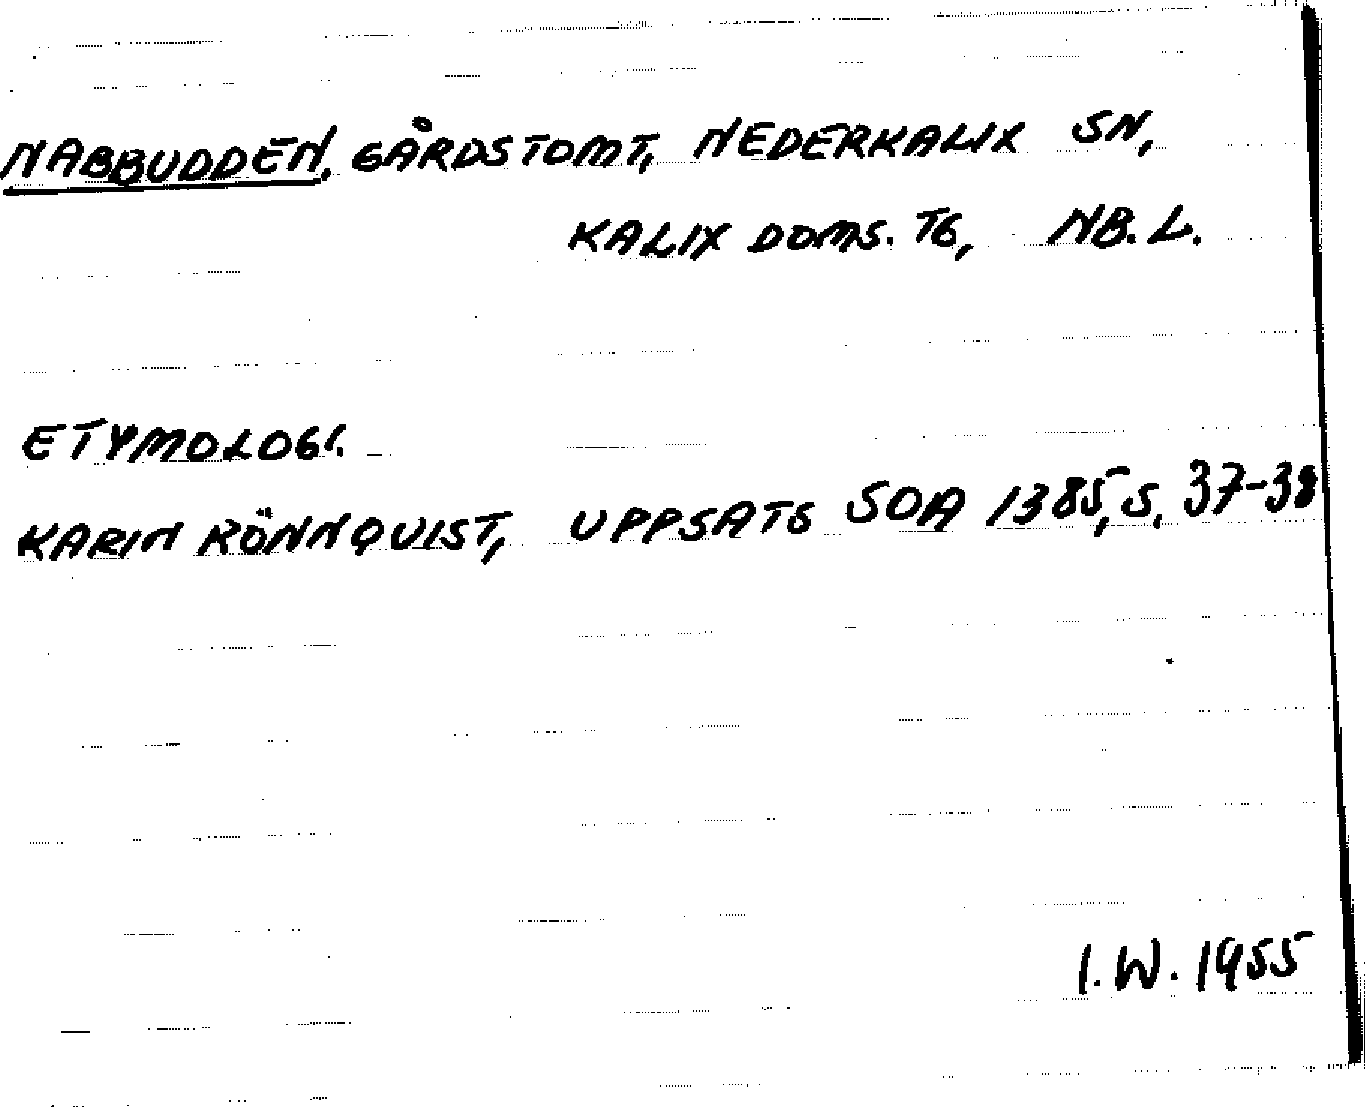 NABBUDDEN, GÅRDSTOMT, NEDERKALIX SN,
KALIX DOMS. TG, NB. L.
ETYMOLOGI.
KARIN RÖNNQUIST, UPPSATS SOA 1385, S. 37-38
I. W. 1955